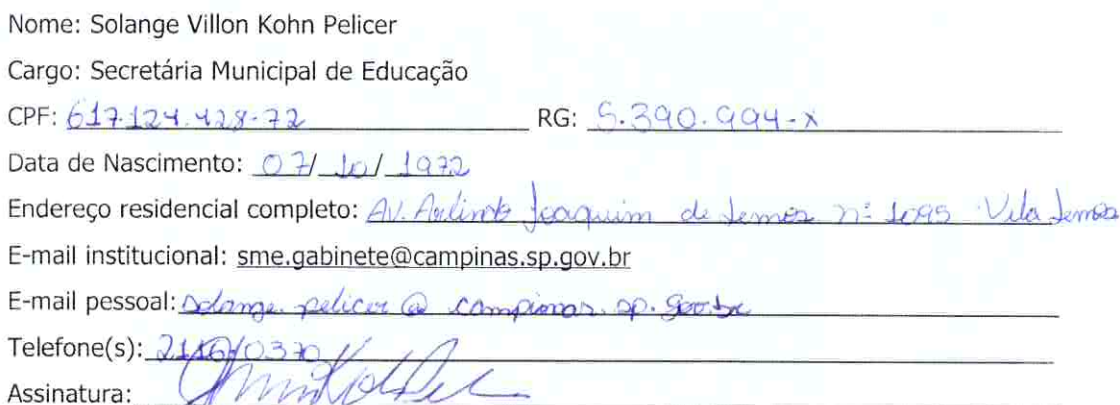 Nome: Solange Villon Kohn Pelicer
Cargo: Secretária Municipal de Educação
CPF: 617.124.428-72 RG: 5.390.994-x
Data de Nascimento: 07/10/1972
Endereço residencial completo: Av. Arlindo Joaquim de Lemos nº 1095 Vila Lemos
E-mail institucional: sme.gabinete@campinas.sp.gov.br
E-mail pessoal: solange.pelicer@campinas.sp.gov.br
Telefone(s): 2116/0370
Assinatura: